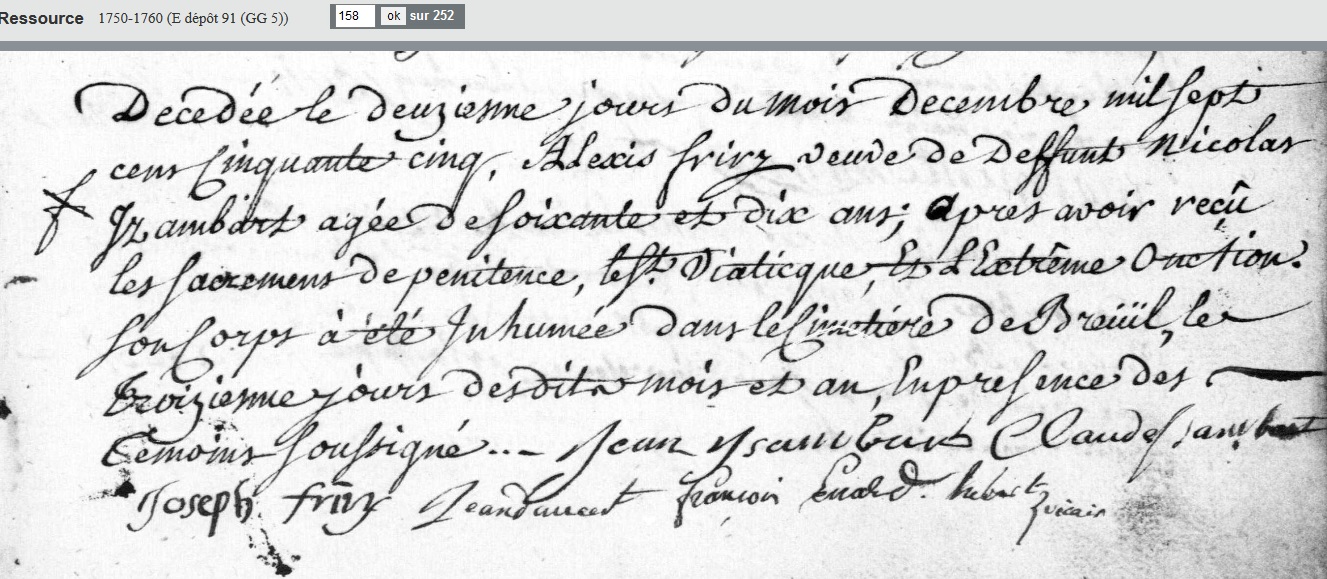 Ressource 1750-1760 (E dépôt 91 (GG 5)) 158 ok sur 252
Decedée le deuzienne jours du mois Decembre mil sept
cens Cinquante cinq, Alexis frirz veuve de Deffunt Nicolas
Izambart agée de soixante et dix ans; apres avoir reçû
les sacremens de penitence, le St. Viaticque, Et L'Extrême Onction.
son Corps à été Inhumée dans le Cimetiere de Breüil, le
Troizienne jours desdits mois et an, En presence des
temoins soussigné... Jean ysambart Claude isambart
Joseph friry françois hubert vicair